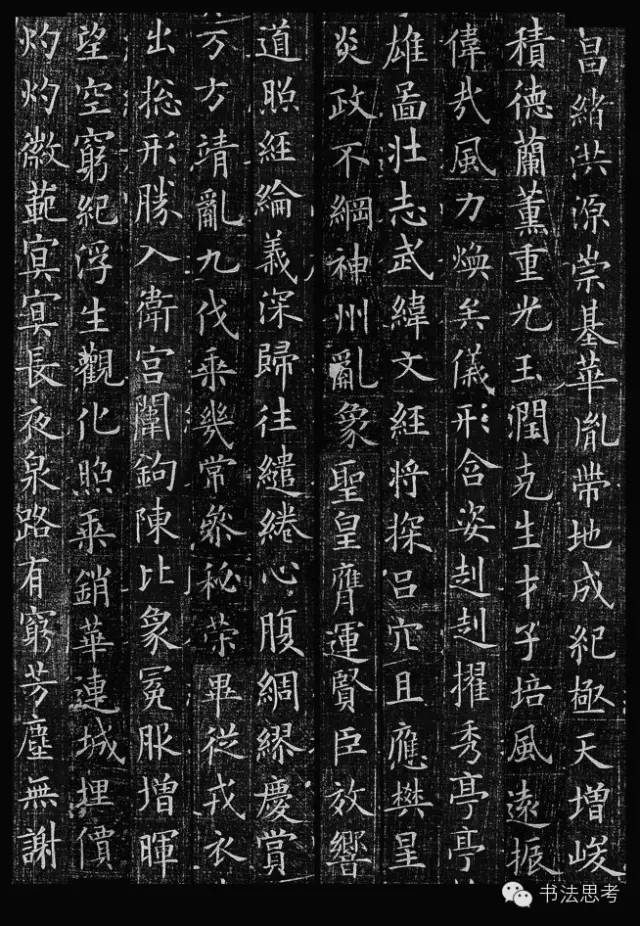 昌緒洪源崇基華胤帶地成紀極天增峻
積德蘭薰重光玉潤克生才子培風遠振
偉哉風力煥矣儀形含姿赳赳擢秀亭亭
雄啚壯志武緯文經將探呂穴且應樊星
炎政不綱神州亂象聖皇膺運賢臣放響
道照經綸義深歸往繾綣心腹綢繆慶賞
万方靖亂九伐乘幾常參秘策畢從戎衣
出揔形勝入衛宮闈鉤陳比象冕服增暉
望空窮紀浮生觀化照乘銷華連城埋價
灼灼徽範㝠㝠長夜泉路有窮芳塵無謝
书法思考